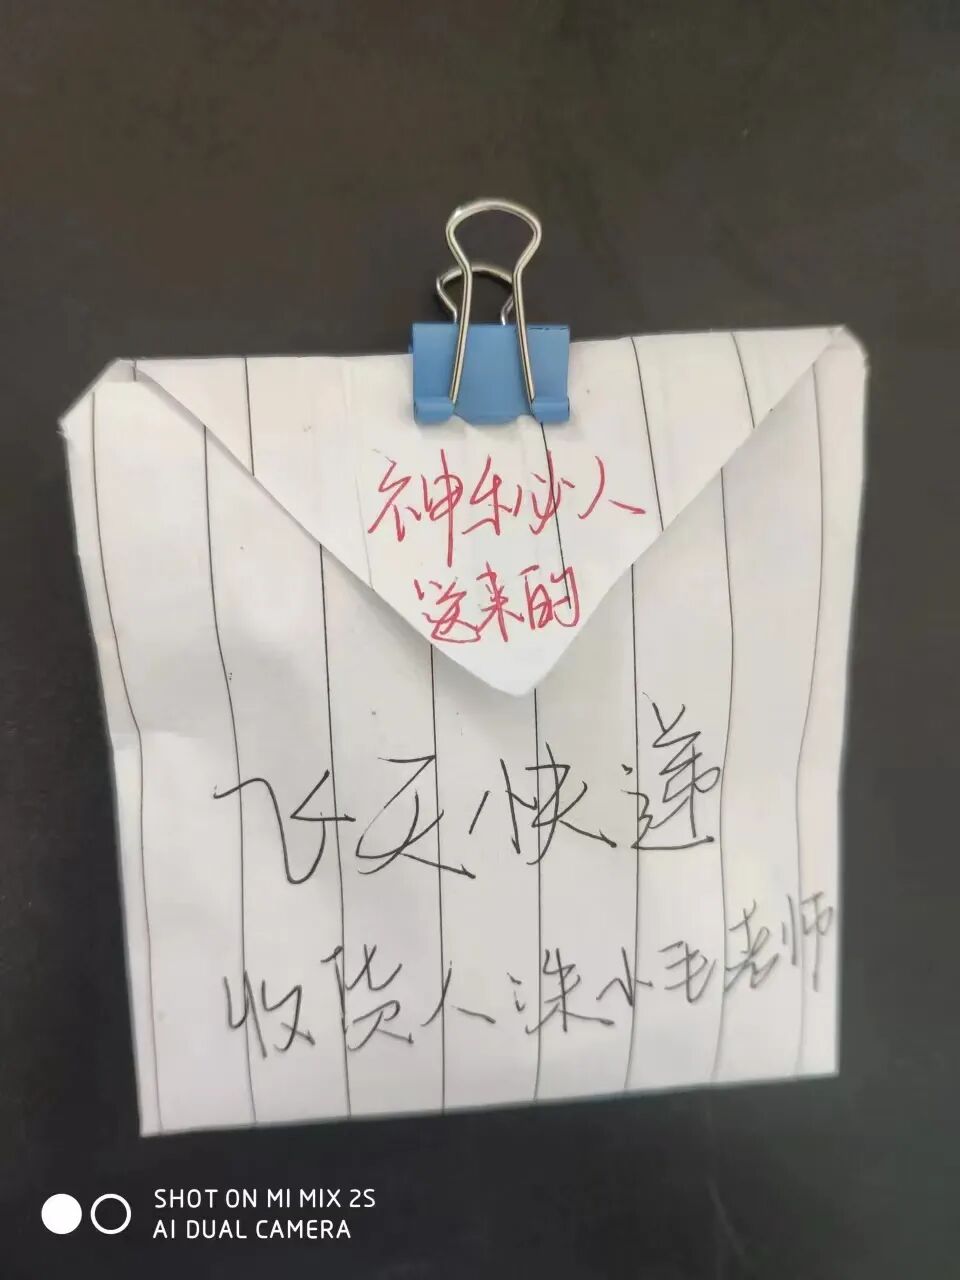 神秘人
送来的
飞天快递
收货人洙小毛老师
SHOT ON MI MIX 2S
AI DUAL CAMERA